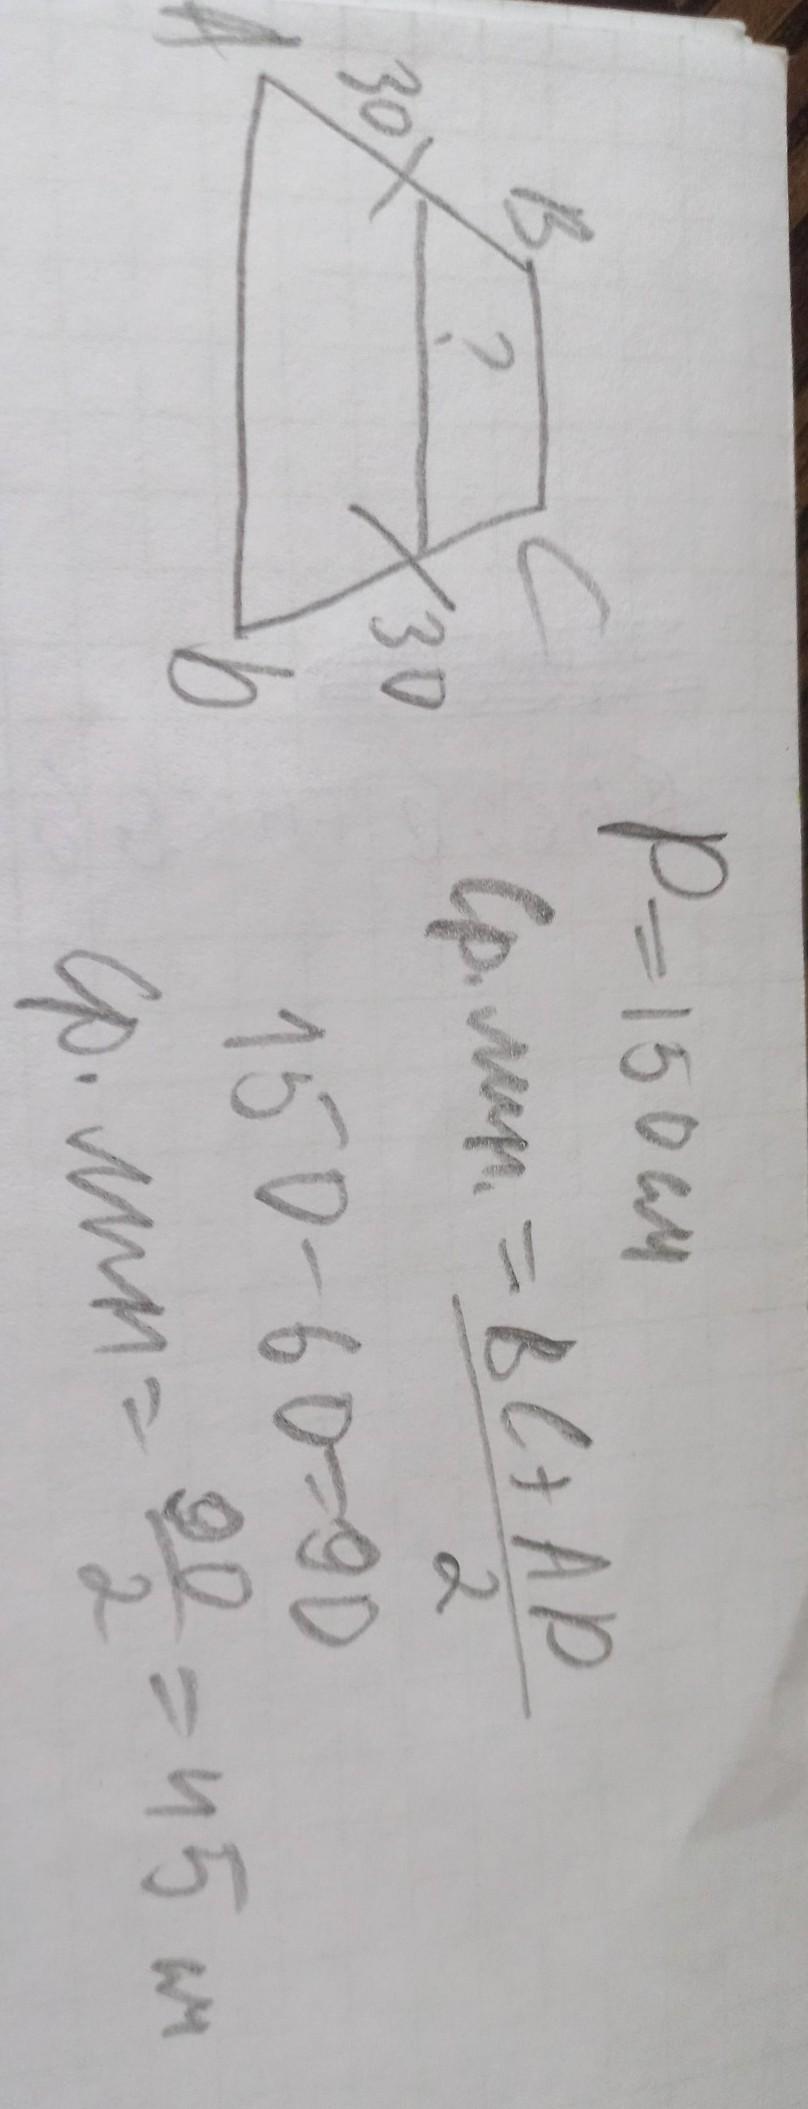 A
30
B
?
C
30
D
P=150см
Ср.лин.=BC+AD
2
150-60=90
Ср.лин=90
2
=45 см